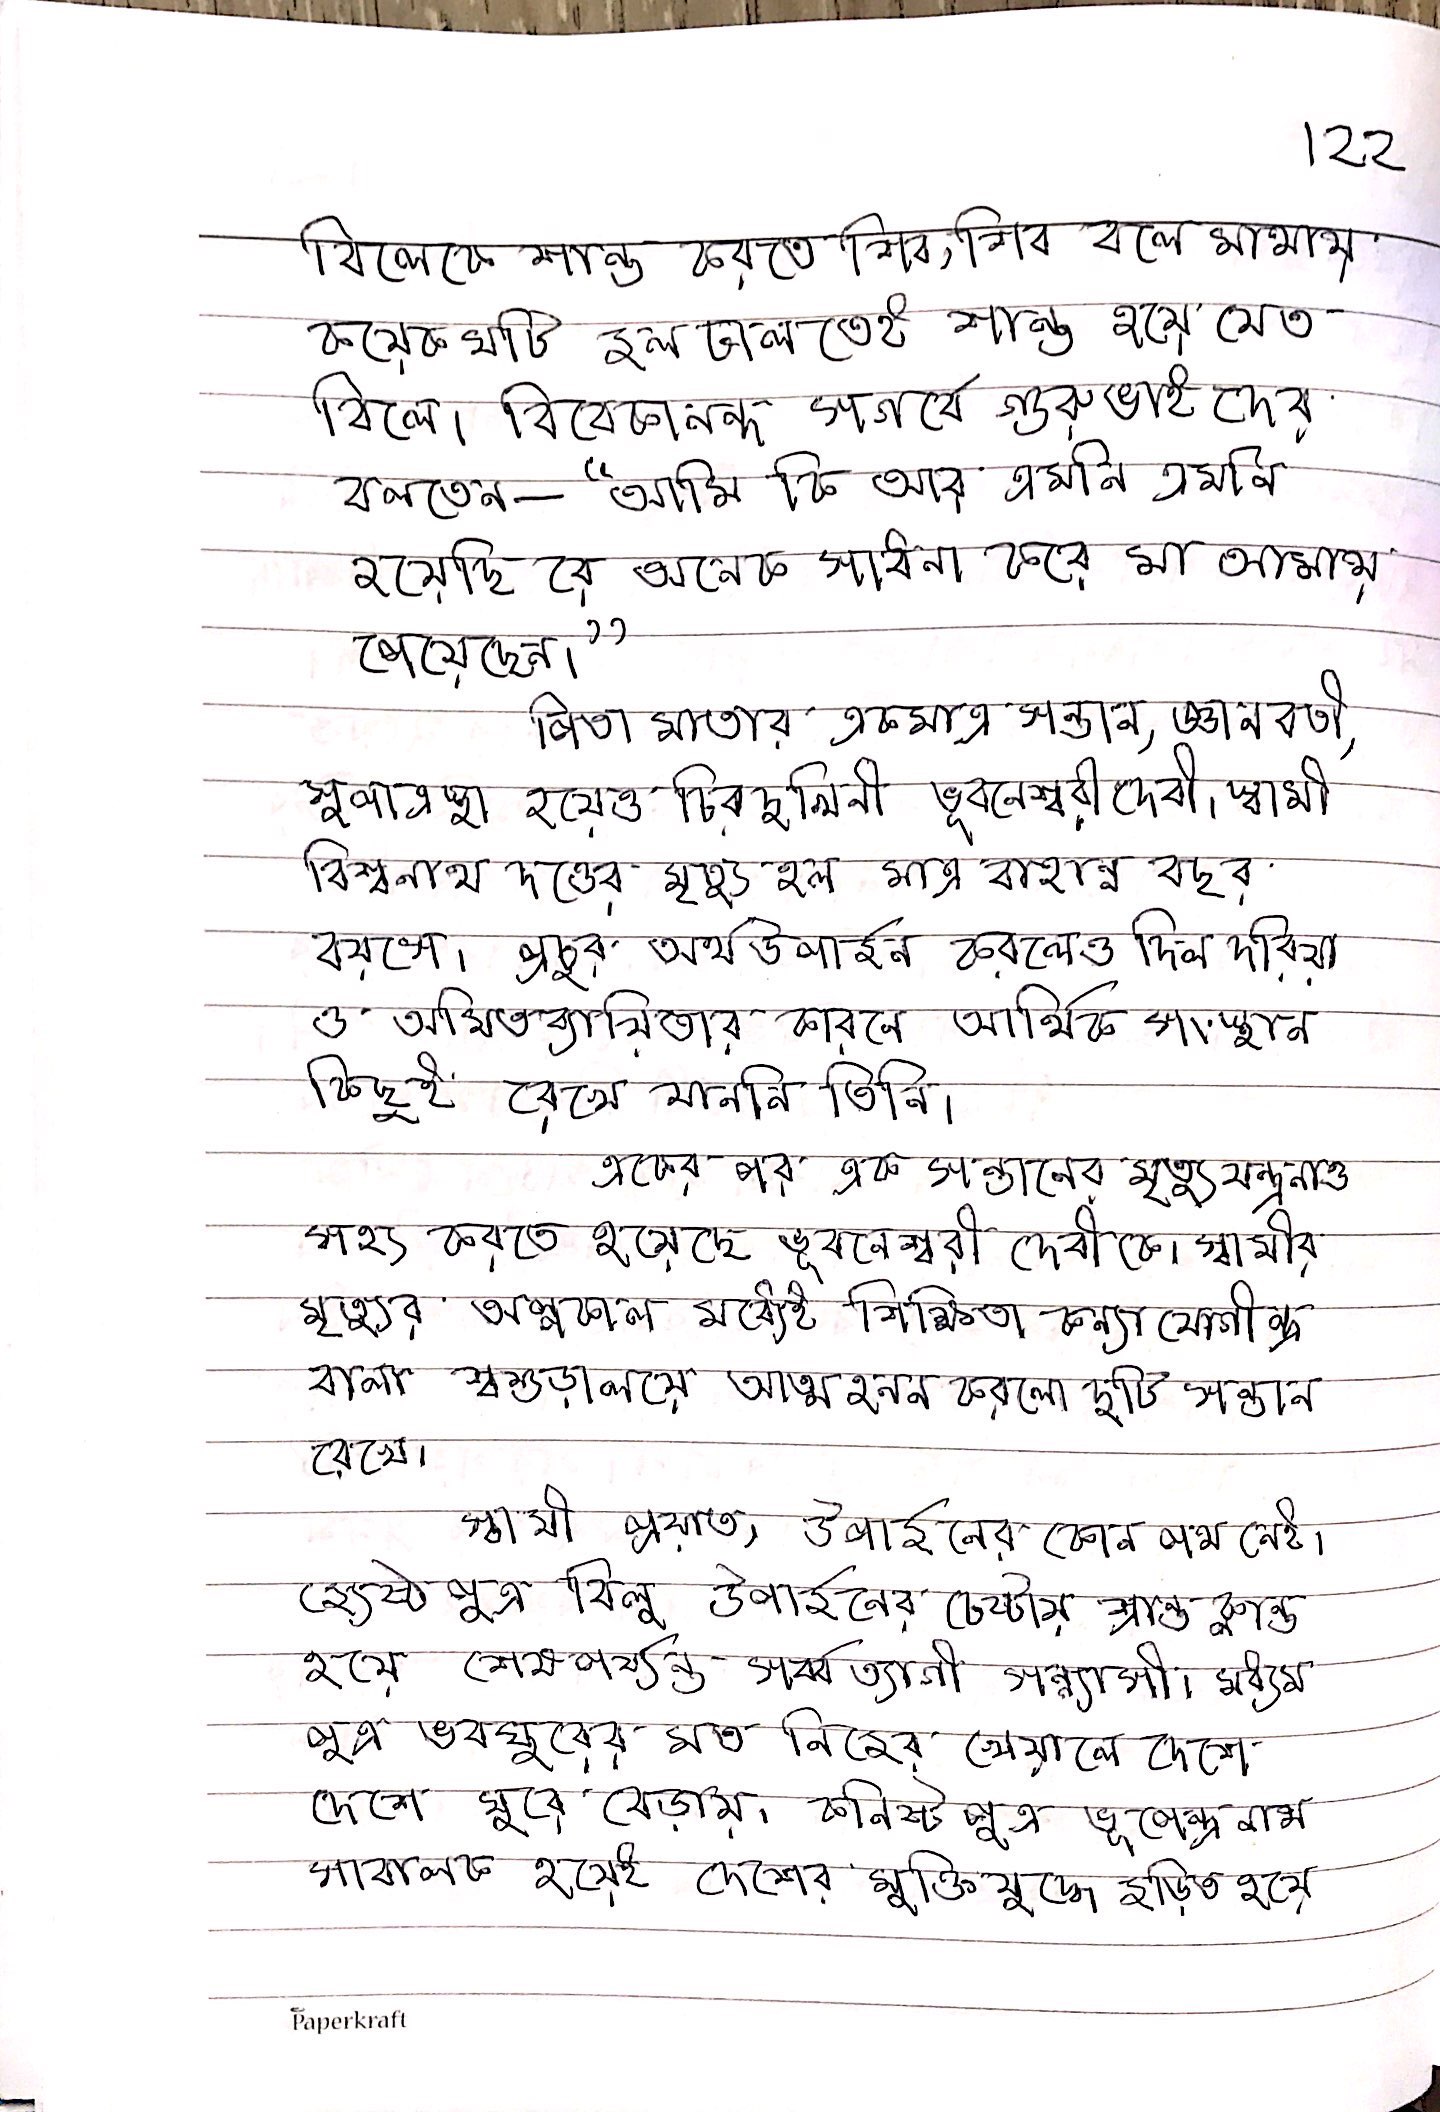 122
বিলেকে শান্ত করতে শিব, শিব বলে মাথায়
কয়েকঘটি জল ঢালতেই শান্ত হয়ে যেত
বিলে। বিবেকানন্দ সগর্বে গুরুভাইদের
বলতেন— “আমি কি আর এমনি এমনি
হয়েছি রে অনেক সাধনা করে মা আমায়
পেয়েছেন।”
পিতা মাতার একমাত্র সন্তান, জ্ঞানবতী,
সুপাত্রস্থা হয়েও চিরদুখিনী ভূবনেশ্বরী দেবী। স্বামী
বিশ্বনাথ দত্তের মৃত্যু হল মাত্র বাহান্ন বছর
বয়সে। প্রচুর অর্থ উপার্জন করলেও দিল দরিয়া
ও অমিতব্যায়িতার কারনে আর্থিক সংস্থান
কিছুই রেখে যাননি তিনি।
একের পর এক সন্তানের মৃত্যু যন্ত্রনাও
সহ্য করতে হয়েছে ভূবনেশ্বরী দেবীকে। স্বামীর
মৃত্যুর অল্পকাল মধ্যেই শিক্ষিতা কন্যা যোগীন্দ্র
বালা শ্বশুড়ালয়ে আত্মহনন করলো দুটি সন্তান
রেখে।
স্বামী প্রয়াত, উপার্জনের কোন পথ নেই।
জ্যেষ্ঠ পুত্র বিলু উপার্জনের চেষ্টায় শ্রান্ত ক্লান্ত
হয়ে শেষপর্য্যন্ত সর্ব্বত্যাগী সন্ন্যাসী। মধ্যম
পুত্র ভবঘুরের মত নিজের খেয়ালে দেশে
দেশে ঘুরে বেড়ায়। কনিষ্ট পুত্র ভূপেন্দ্রনাথ
সাবালক হয়েই দেশের মুক্তিযুদ্ধে জড়িত হয়ে
Paperkraft